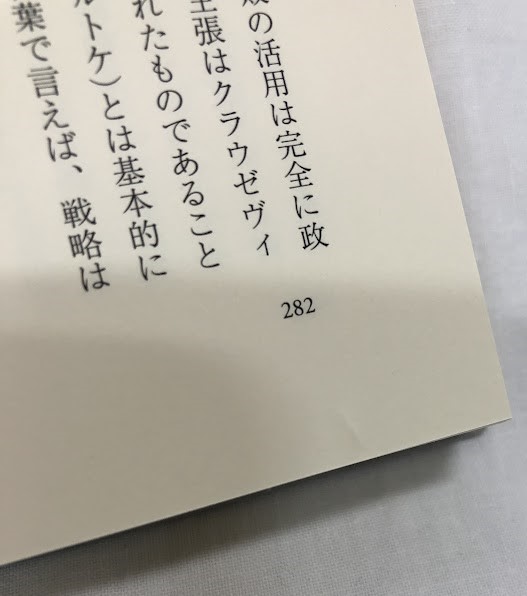 の活用は完全に政
主張はクラウゼヴィ
れたものであること
ルトケ）とは基本的に
葉で言えば、戦略は
282